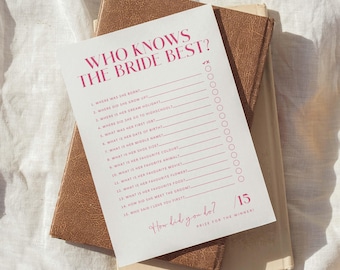 WHO KNOWS
THE BRIDE BEST?
1. WHERE WAS SHE BORN?
2. WHERE DID SHE GROW UP?
3. WHERE IS HER DREAM HOLIDAY?
4. WHERE DID SHE GO TO
5. WHAT WAS HER FIRST JOB?
6. WHAT IS HER DATE OF BIRTH?
7. WHAT IS HER MIDDLE NAME?
8. WHAT IS HER SHOE SIZE?
9. WHAT IS HER FAVOURITE COLOUR?
10. WHAT IS HER FAVOURITE ANIMAL?
11. WHAT IS HER FAVOURITE
12. WHAT IS HER FAVOURITE FLOWER?
13. WHAT IS HER FAVOURITE FOOD?
14. HOW DID SHE MEET THE GROOM?
15. WHO SAID I LOVE YOU FIRST?
How did you do?
/15
PRIZE FOR THE WINNER!